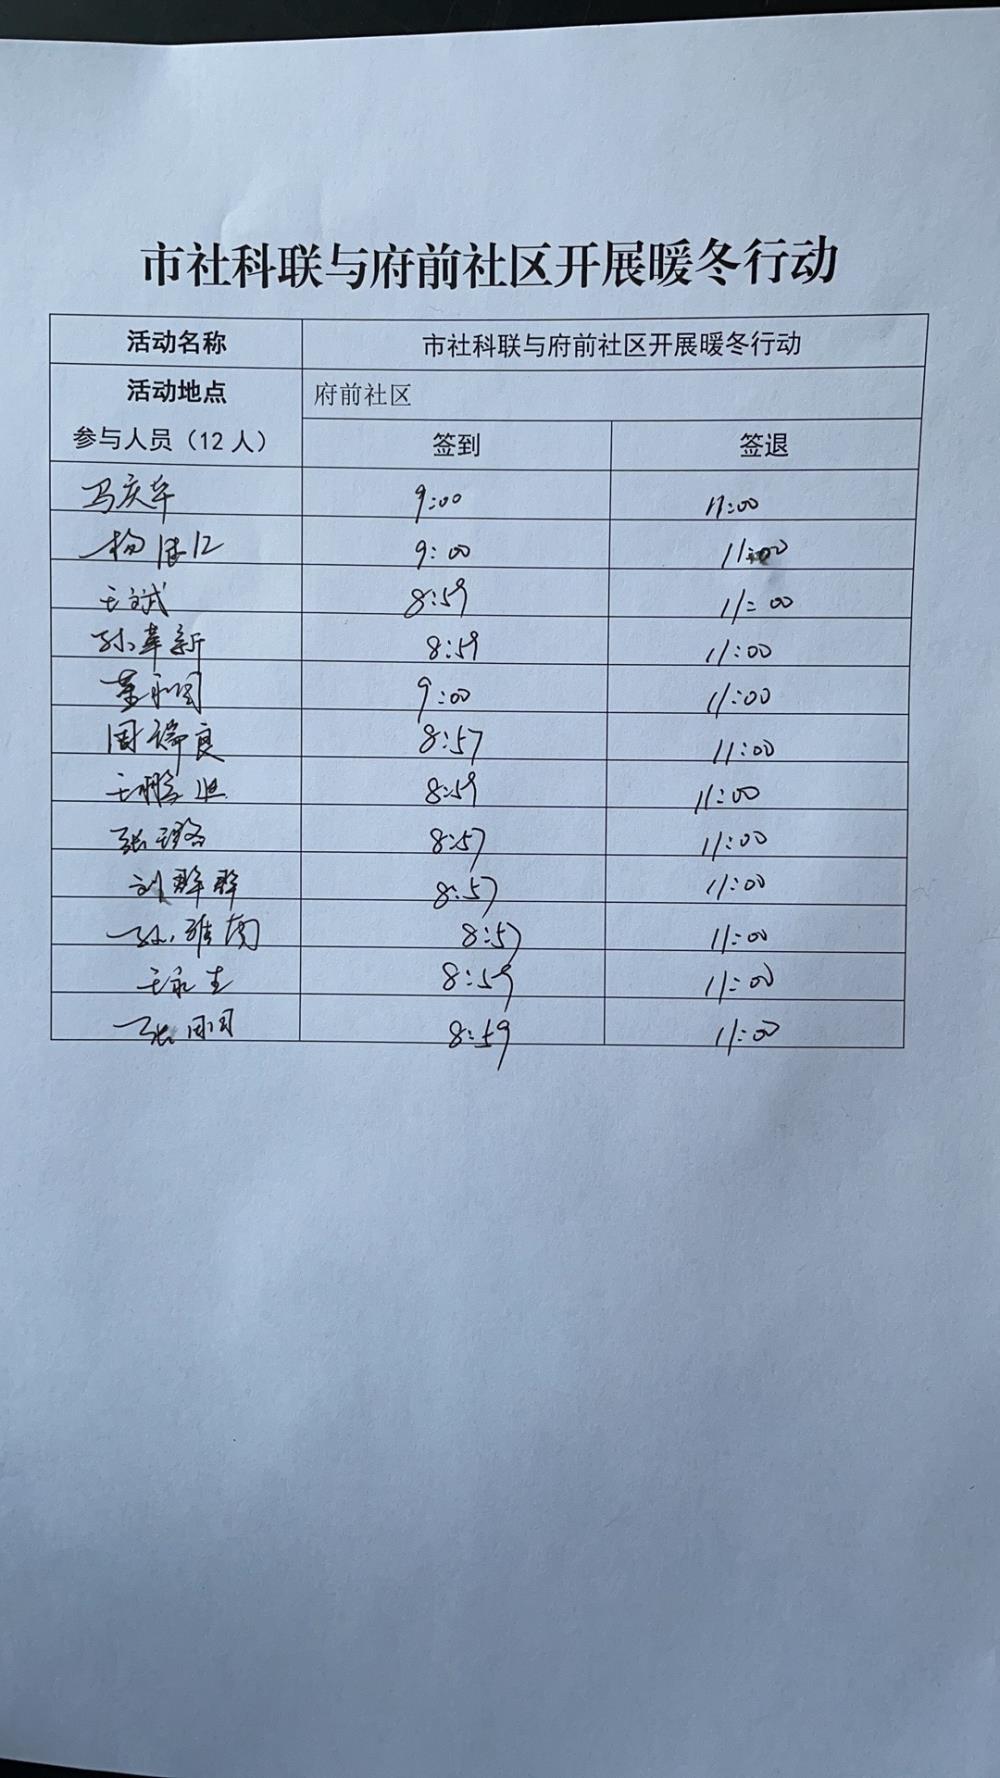 市社科联与府前社区开展暖冬行动
活动名称 市社科联与府前社区开展暖冬行动
活动地点 府前社区
参与人员（12人） 签到 签退
马庆年 9:00 11:00
杨 9:00 11:00
王斌 8:59 11:00
孙革新 8:59 11:00
董利国 9:00 11:00
周瑞良 8:57 11:00
王鹏 8:59 11:00
张璐 8:57 11:00
刘群群 8:57 11:00
孙雅 8:57 11:00
王永生 8:59 11:00
张同同 8:59 11:00